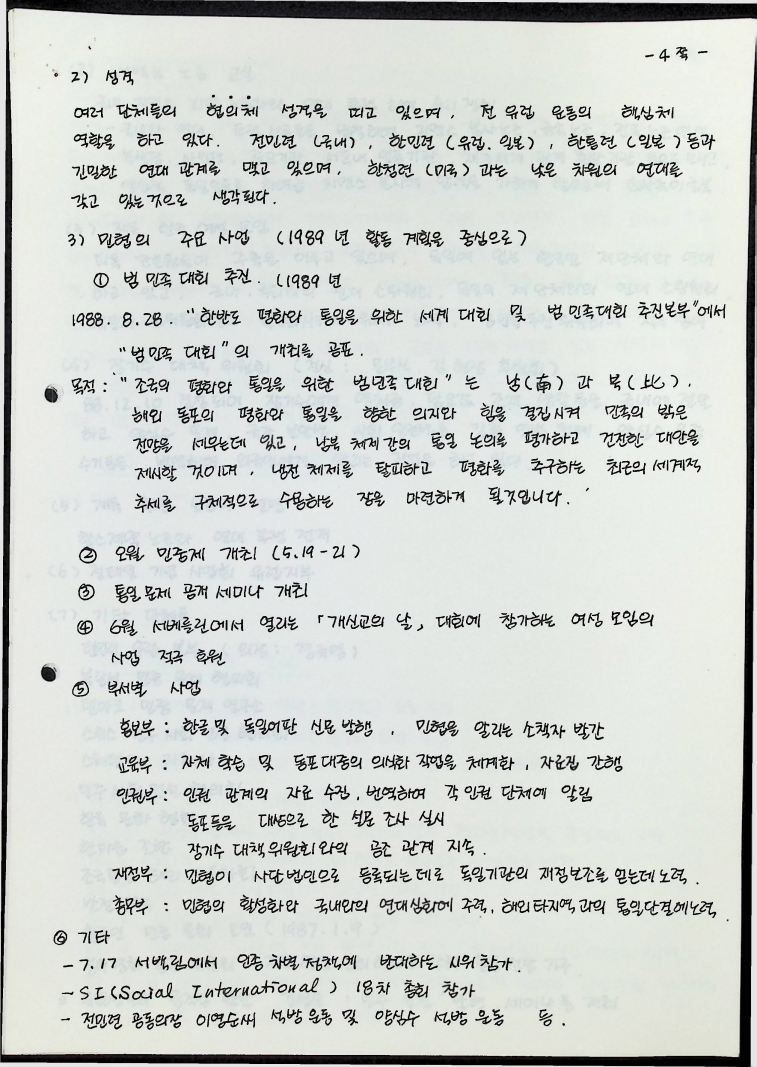 - 4 쪽 -
2) 성격
여러 단체들의 협의체 성격을 띠고 있으며, 전 유럽 운동의 핵심체
역할을 하고 있다. 전민련 (국내), 한민련 (유럽, 일본), 한통련 (일본) 등과
긴밀한 연대 관계를 맺고 있으며, 한청련 (미국) 과는 낮은 차원의 연대를
갖고 있는 것으로 생각된다.
3) 민협의 주요 사업 (1989 년 활동 계획을 중심으로)
① 범 민족 대회 추진. (1989 년
1988. 8. 28. "한반도 평화와 통일을 위한 세계 대회 및 범 민족대회 추진본부"에서
"범민족 대회" 의 개최를 공표.
목적 : "조국의 평화와 통일을 위한 범민족 대회" 는 남(南) 과 북(北).
해외 동포의 평화와 통일을 향한 의지와 힘을 결집시켜 민족의 밝은
전망을 세우는데 있고, 남북 체제 간의 통일 논의를 평가하고 건전한 대안을
제시할 것이며, 냉전 체제를 탈피하고 평화를 추구하는 최근의 세계적
추세를 구체적으로 수용하는 장을 마련하게 될것입니다.
② 오월 민중제 개최 (5.19 - 21)
③ 통일 문제 공개 세미나 개최
④ 6월 서베를린에서 열리는 「개신교의 날」 대회에 참가하는 여성 모임의
사업 적극 후원
⑤ 부서별 사업
홍보부 : 한글 및 독일어판 신문 발행, 민협을 알리는 소책자 발간
교육부 : 자체 학습 및 동포 대중의 의식화 작업을 체계화, 자료집 간행
인권부 : 인권 관계의 자료 수집, 번역하여 각 인권 단체에 알림
동포들을 대상으로 한 설문 조사 실시
장기수 대책위원회와의 공조 관계 지속.
재정부 : 민협이 사단법인으로 등록되는데로 독일기관의 재정보조를 얻는데 노력.
총무부 : 민협의 활성화와 국내와의 연대심화에 주력, 해외타지역과의 통일단결에노력.
⑥ 기타
- 7.17 서백림에서 인종 차별 정책에 반대하는 시위 참가.
- SI (Social International) 18차 총회 참가
- 전민련 공동의장 이영순씨 석방 운동 및 양심수 석방 운동 등.